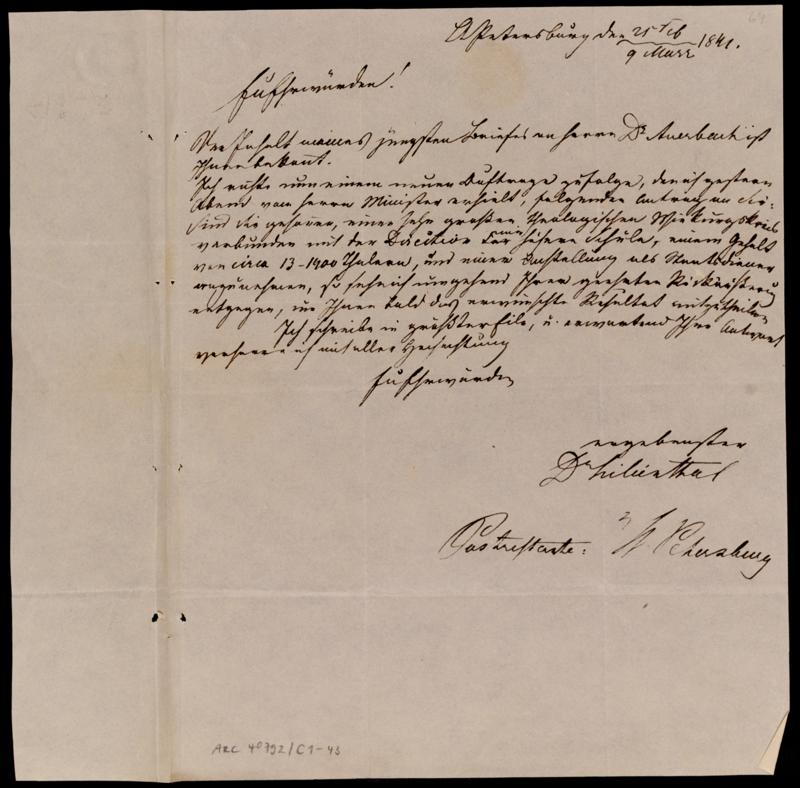 StPetersburg den 25 Feb / 9 Maerz 1841.
64
Euehrwürden!
Der Inhalt meines jüngsten Briefes an Herrn Dr Auerbach ist
Ihnen bekannt.
Ich richte nun einem neuen Auftrage zufolge, den ich gestern
Abend vom Herrn Minister erhielt, folgenden Antrag an Sie:
Sind Sie gesonnen, einen sehr großen theologischen Wirkungskreis
verbunden mit der Direction einer höhern Schule, einem Gehalt
von circa 13-1400 Thalern, und einer Anstellung als Staatsdiener
anzunehmen, so sehe ich umgehend Ihrer geehrten Rückäußerung
entgegen, um Ihnen bald das erwünschte Resultat mitzutheilen.
Ich schreibe in größter Eile, u. erwartend Ihre Antwort
verharre ich mit aller Hochachtung
Euehrwürden
ergebenster
Dr Lilienthal
Posterestante: St. Petersburg
ARC 4°792/C1-43